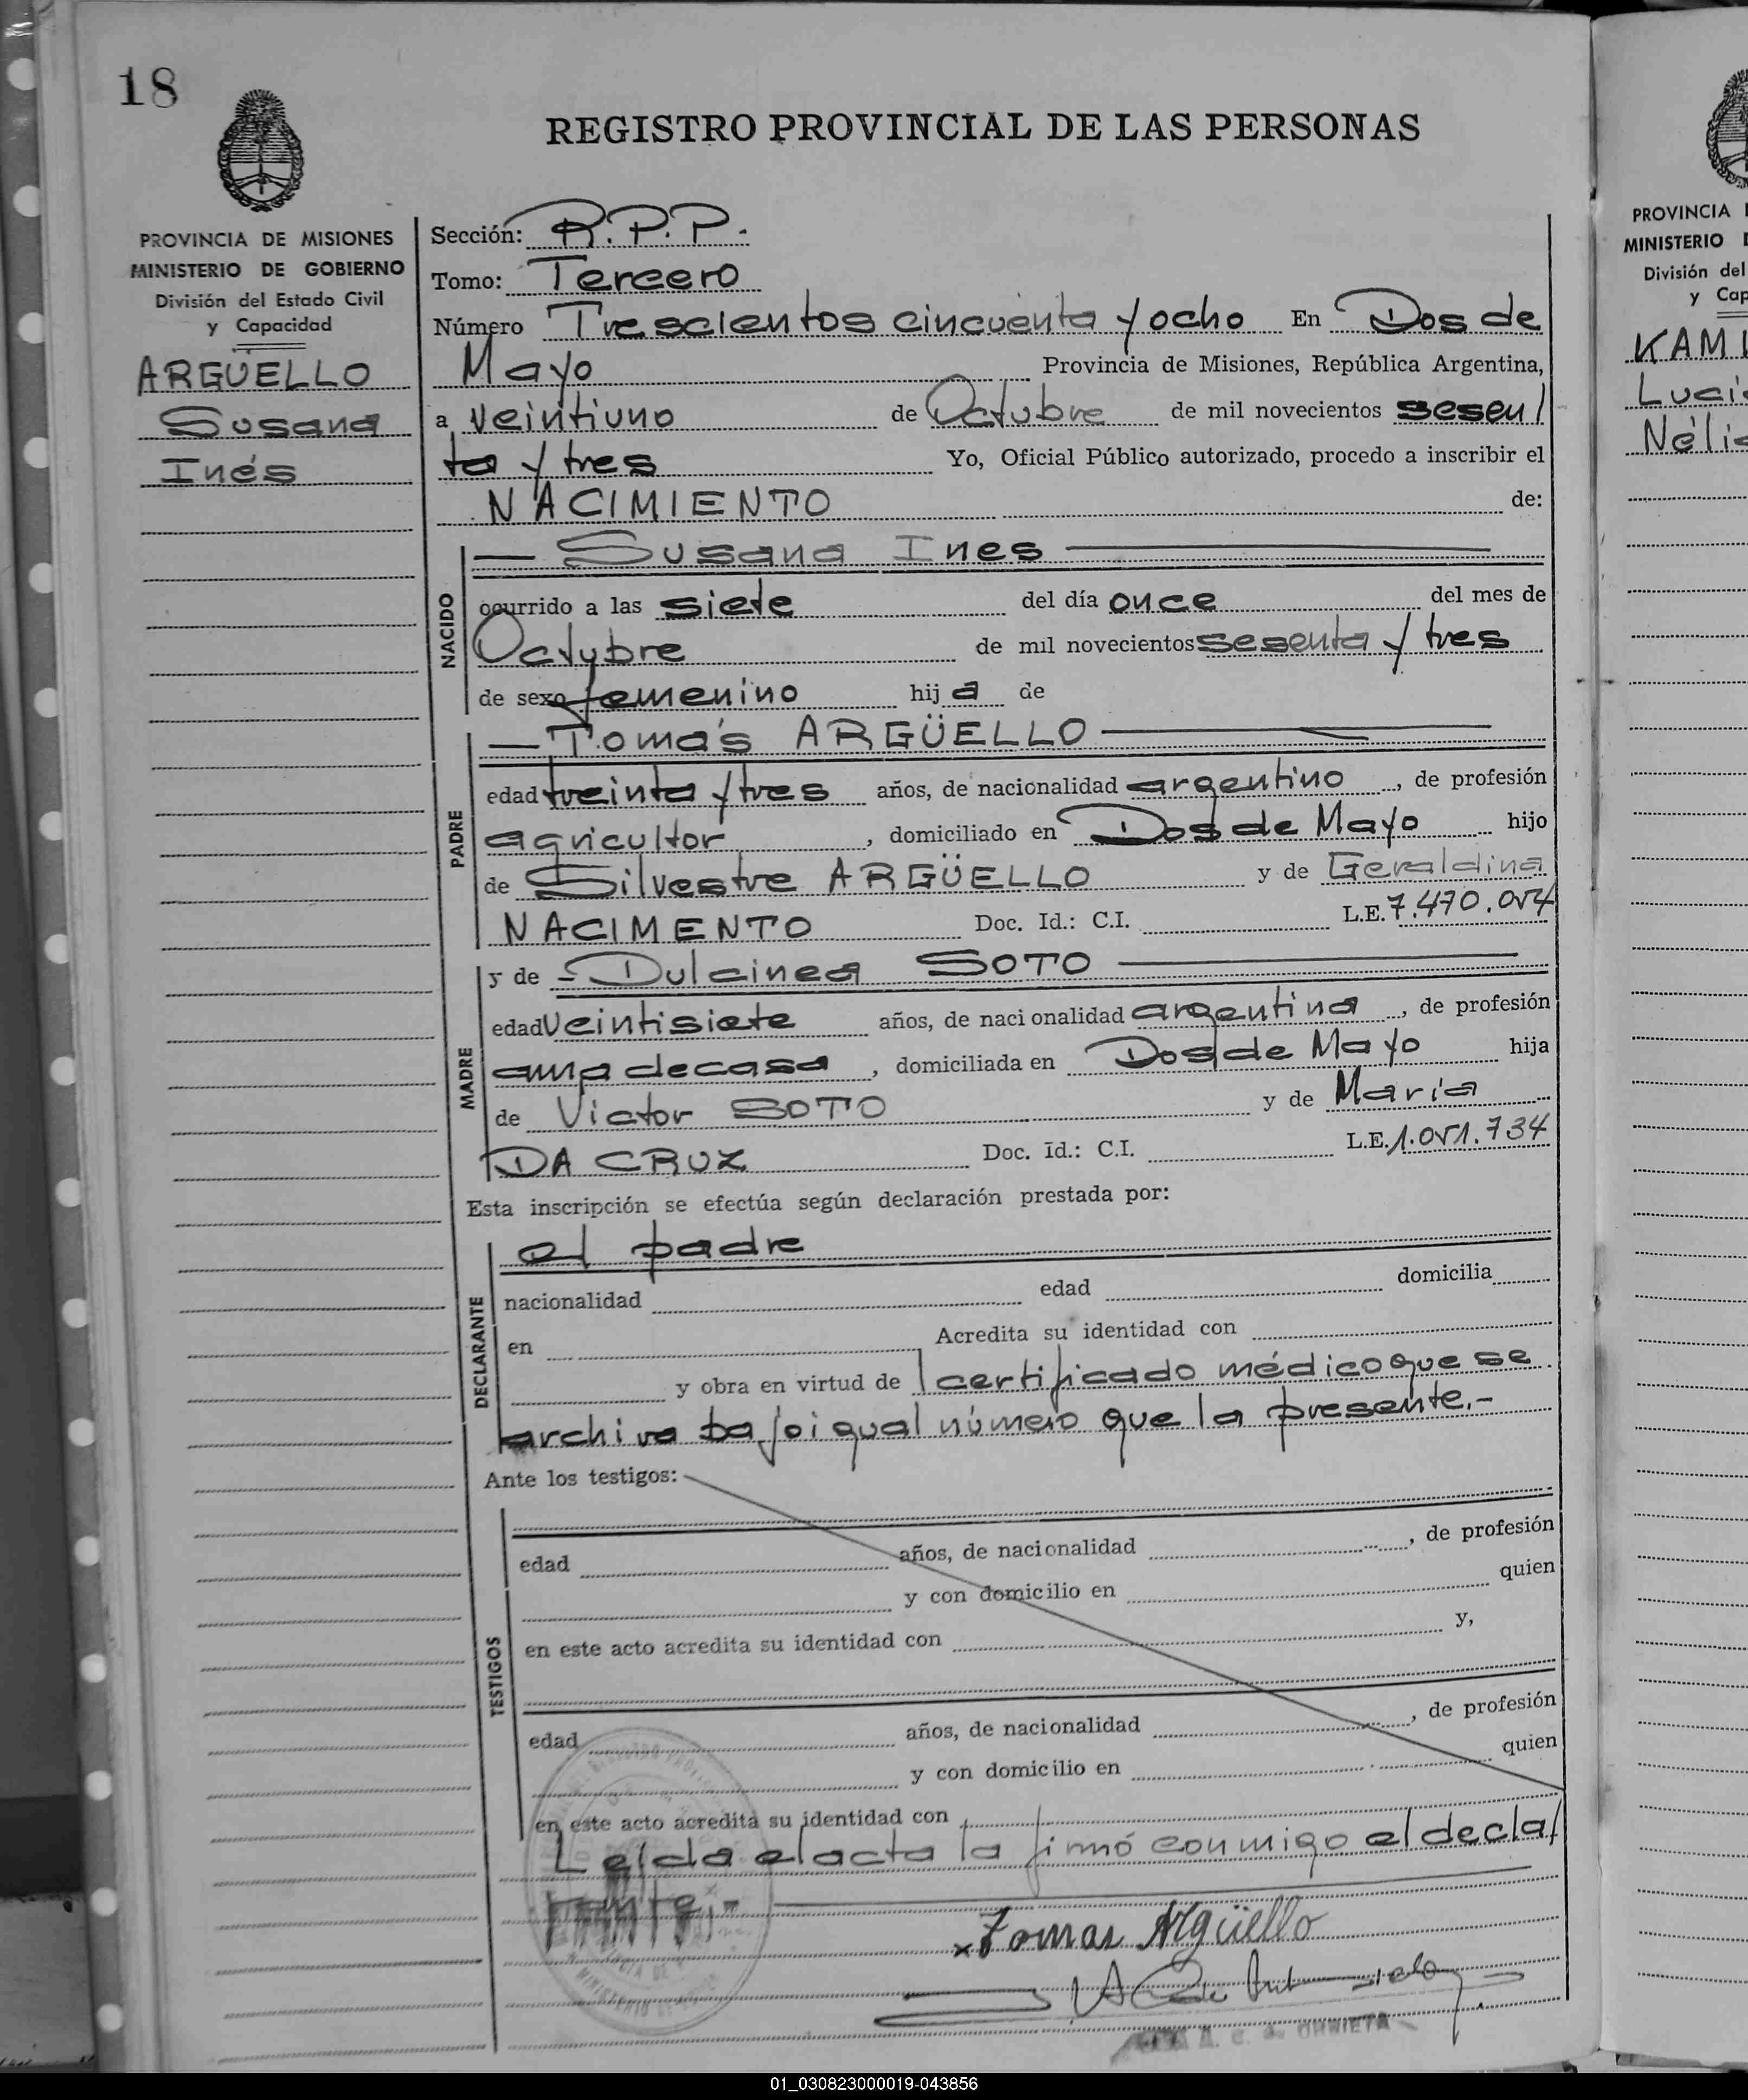 18
REGISTRO PROVINCIAL DE LAS PERSONAS
PROVINCIA DE MISIONES
MINISTERIO DE GOBIERNO
División del Estado Civil
y Capacidad
ARGÜELLO
Susana
Inés
Sección: R.P.P.
Tomo: Tercero
Número Trescientos cincuenta y ocho En Dos de
Mayo Provincia de Misiones, República Argentina,
a veintiuno de Octubre de mil novecientos sesen/
ta y tres Yo, Oficial Público autorizado, procedo a inscribir el
NACIMIENTO de:
NACIDO
— Susana Ines —
ocurrido a las siete del día once del mes de
Octubre de mil novecientos sesenta y tres
de sexo femenino hij a de
PADRE
— Tomás ARGÜELLO —
edad treinta y tres años, de nacionalidad argentino, de profesión
agricultor, domiciliado en Dos de Mayo hijo
de Silvestre ARGÜELLO y de Geraldina
NACIMENTO Doc. Id.: C.I. L.E. 7.470.054
MADRE
y de - Dulcinea SOTO —
edad veintisiete años, de nacionalidad argentina, de profesión
ama de casa, domiciliada en Dos de Mayo hija
de Victor SOTO y de María
DA CRUZ Doc. Id.: C.I. L.E. 1.051.734
Esta inscripción se efectúa según declaración prestada por:
DECLARANTE
el padre
nacionalidad edad domicilia
en Acredita su identidad con
y obra en virtud de l certificado médico que se
archiva bajo igual número que la presente.-
Ante los testigos:
TESTIGOS
edad años, de nacionalidad , de profesión
y con domicilio en quien
en este acto acredita su identidad con y,
edad años, de nacionalidad , de profesión
y con domicilio en quien
en este acto acredita su identidad con
Leída el acta la firmó conmigo el decla/
rante.-
x Tomas Argüello
A. C. de URRIETA
PROVINCIA
MINISTERIO
División del
y Cap
KAM
Luci
Néli
01_030823000019-043856